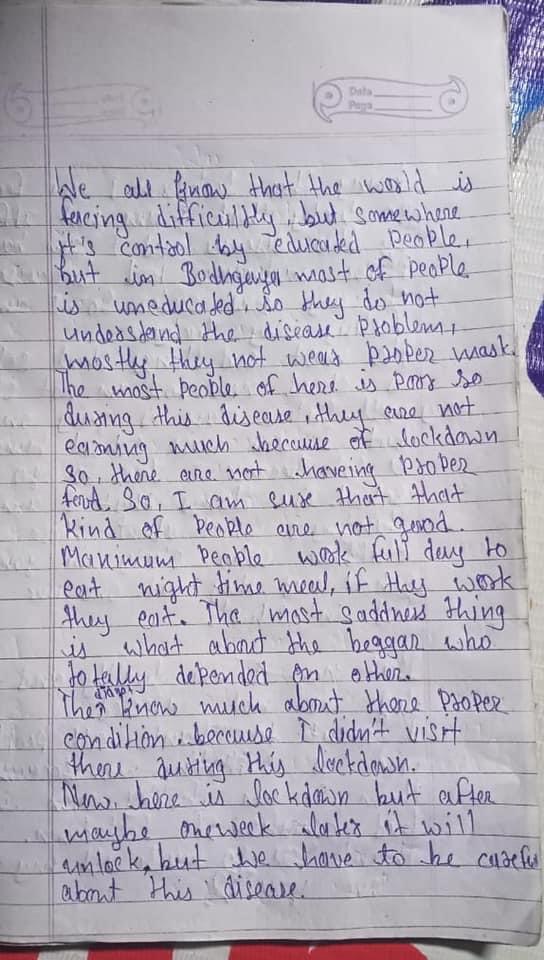 Date
Page
We all know that the world is
feacing difficultly, but somewhere
it's control by educated people,
but in Bodhgaya most of people
is uneducated, so they do not
understand the disease problem,
mostly they not wear proper mask.
The most people of here is poor so
during this disease, they are not
earning much because of lockdown
So, there are not haveing proper
food. So, I am sure that that
kind of people are not good.
Maximum people work full day to
eat night time meal, if they work
they eat. The most saddness thing
is what about the beggar who
totally depended on other.
Then didn't know much about there proper
condition because I didn't visit
there during this lockdown.
Now, here is lockdown but after
maybe one week later it will
unlock, but we have to be careful
about this disease.